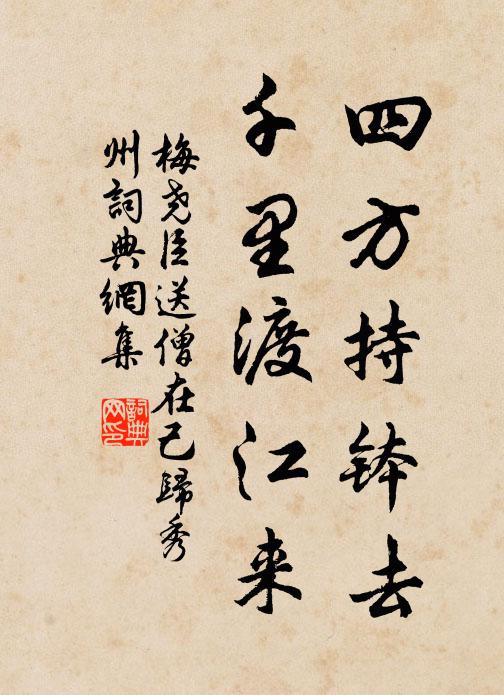 四方持钵去
千里渡江来
梅尧臣送僧在己歸秀
州詞典網集
詞典网印